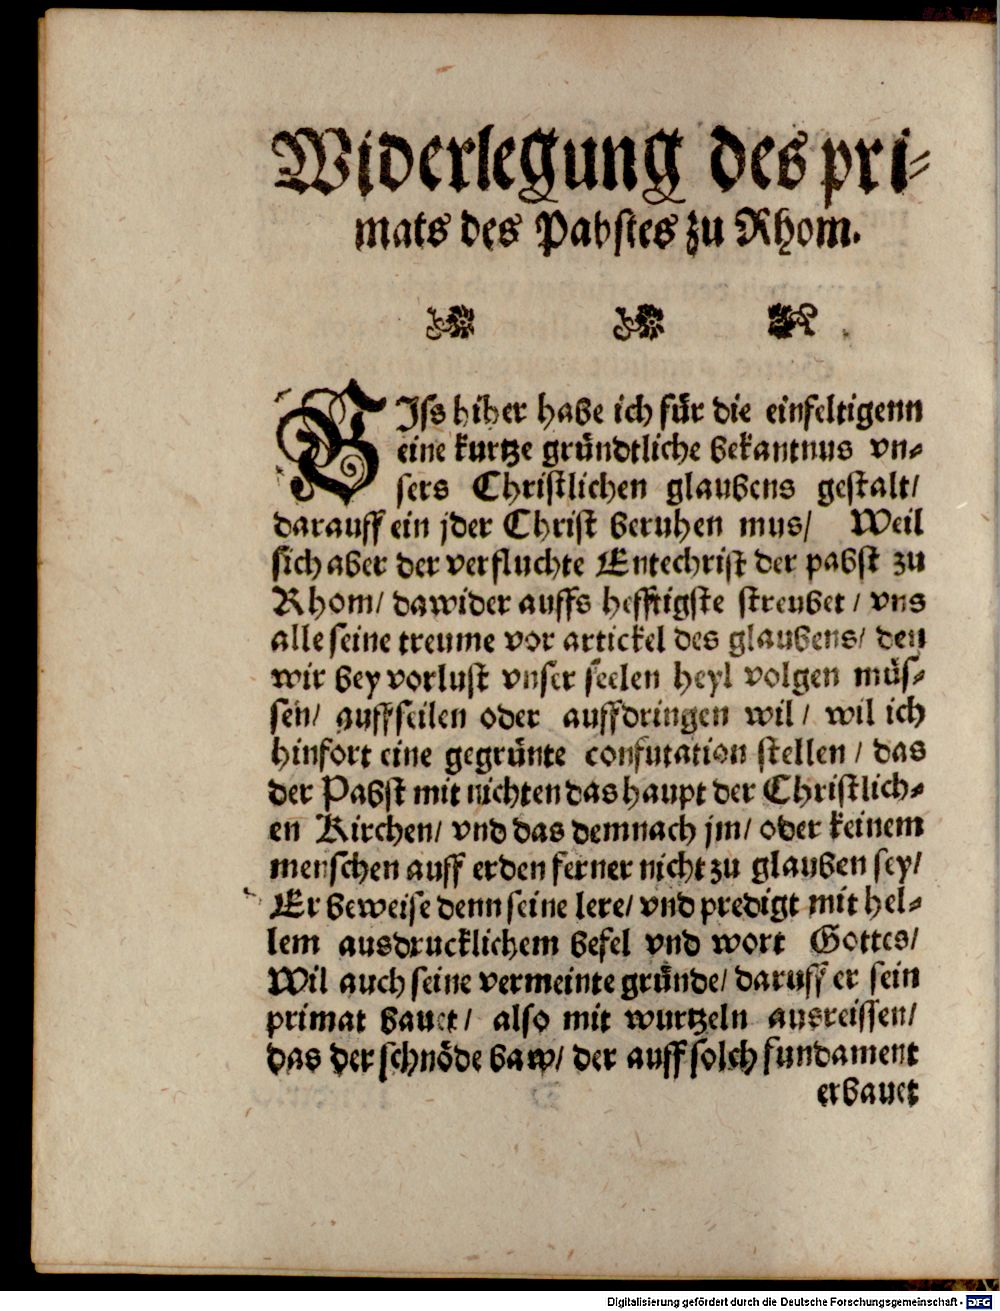 Widerlegung des pri-
mats des Pabstes zu Rhom.
BIſs hiher habe ich für die einfeltigenn
eine kurtze gründtliche bekantnus vn-
ſers Chriſtlichen glaubens geſtalt/
darauff ein jder Chriſt beruhen mus/ Weil
ſich aber der verfluchte Entechriſt der pabſt zu
Rhom/ dawider auffs hefftigſte ſtreubet/ vns
alle ſeine treume vor artickel des glaubens/ den
wir bey vorluſt vnſer ſeelen heyl volgen müſ-
ſen/ auffſeilen oder auffdringen wil/ wil ich
hinfort eine gegrünte confutation ſtellen/ das
der Pabſt mit nichten das haupt der Chriſtlich-
en Kirchen/ vnd das demnach jm/ oder keinem
menſchen auff erden ferner nicht zu glauben ſey/
Er beweiſe denn ſeine lere/ vnd predigt mit hel-
lem ausdrucklichem befel vnd wort Gottes/
Wil auch ſeine vermeinte gründe/ daruff er ſein
primat bauet/ alſo mit wurtzeln ausreiſſen/
das der ſchnöde baw/ der auff ſolch fundament
erbauet
Digitalisierung gefördert durch die Deutsche Forschungsgemeinschaft - DFG